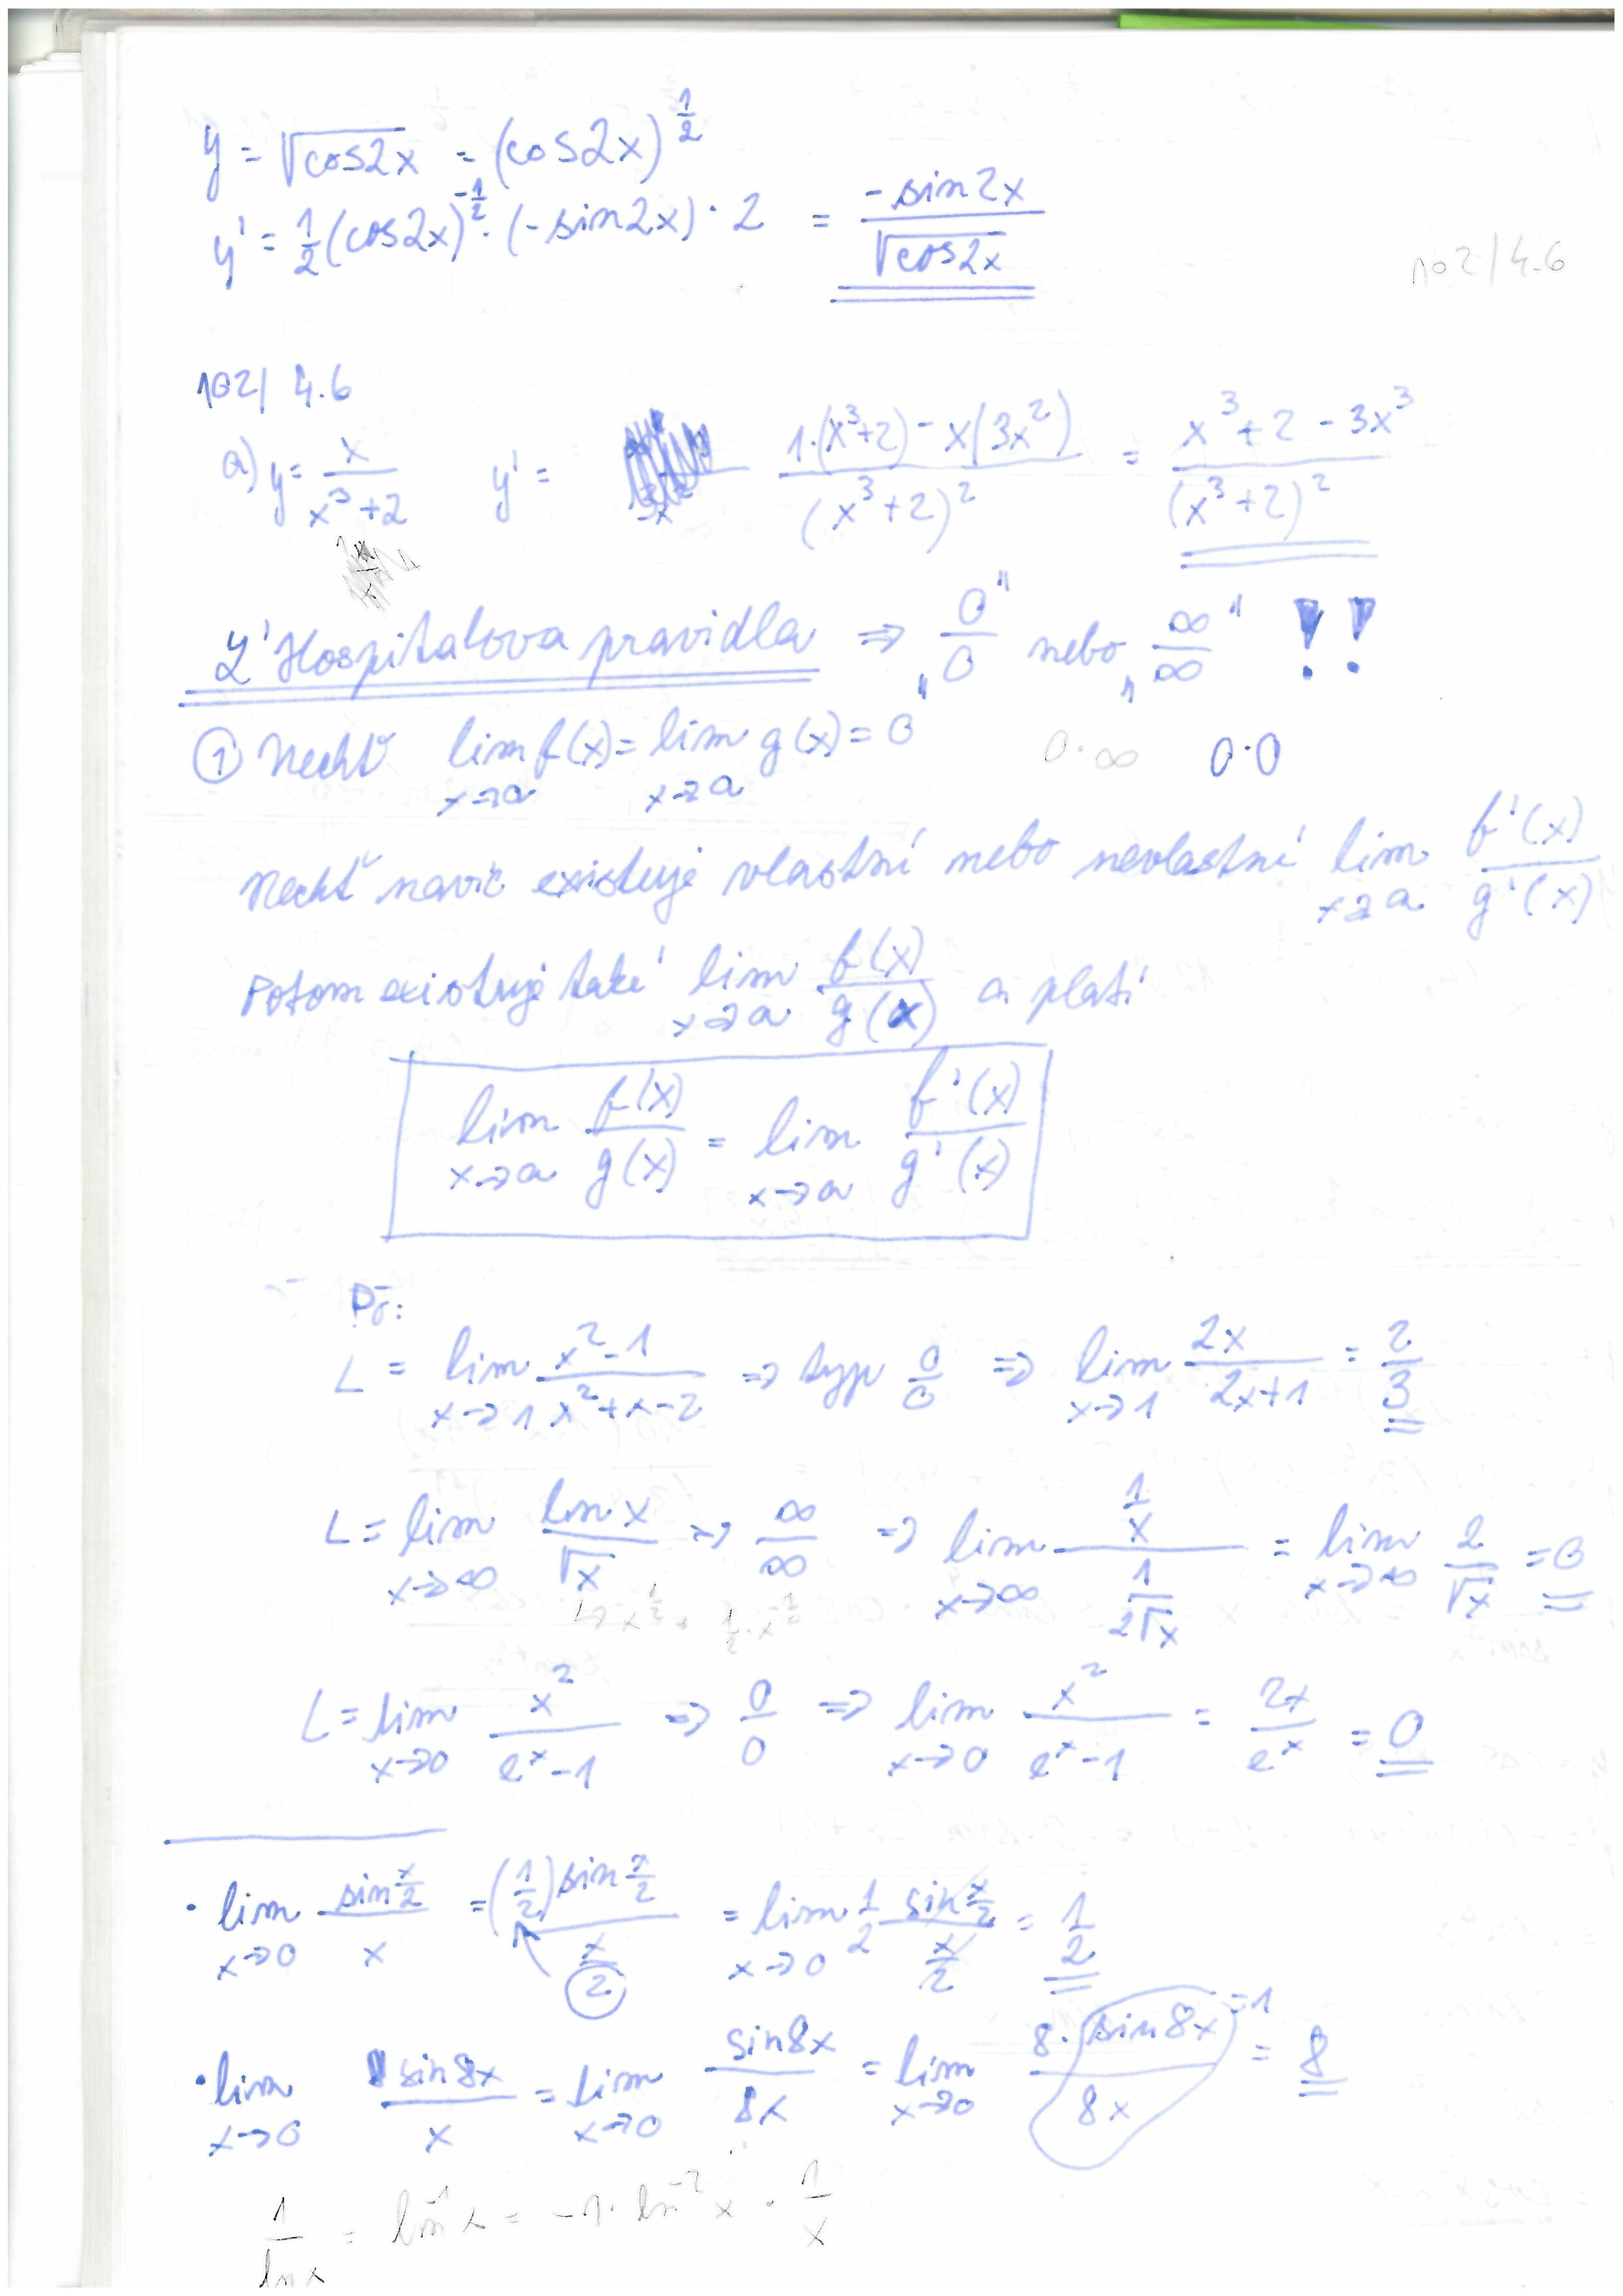 y = √cos2x = (cos2x)^{1/2}
y' = 1/2 (cos2x)^{-1/2} · (-sin2x) · 2 = -sin2x / √cos2x
102/4.6
102/ 4.6
a) y = x / (x³+2) y' = (1·(x³+2) - x(3x²)) / (x³+2)² = (x³+2-3x³) / (x³+2)²
L'Hospitalova pravidla ⇒ „0/0" nebo „∞/∞" !!
① Nechť lim_{x→a} f(x) = lim_{x→a} g(x) = 0 0·∞ 0·0
Nechť navíc existuje vlastní nebo nevlastní lim_{x→a} f'(x)/g'(x)
Potom existuje také lim_{x→a} f(x)/g(x) a platí
lim_{x→a} f(x)/g(x) = lim_{x→a} f'(x)/g'(x)
Př:
L = lim_{x→1} (x²-1)/(x²+x-2) ⇒ typ 0/0 ⇒ lim_{x→1} 2x/(2x+1) = 2/3
L = lim_{x→∞} ln x/√x ⇒ ∞/∞ ⇒ lim_{x→∞} (1/x)/(1/(2√x)) = lim_{x→∞} 2/√x = 0
↳ x^{1/2} = 1/2 · x^{-1/2}
L = lim_{x→0} x²/(e^x-1) ⇒ 0/0 ⇒ lim_{x→0} x²/(e^x-1) = 2x/e^x = 0
· lim_{x→0} sin(x/2)/x = (1/2) sin(x/2)/(x/2) = lim_{x→0} 1/2 sin(x/2)/(x/2) = 1/2
· lim_{x→0} sin8x/x = lim_{x→0} sin8x/8x = lim_{x→0} 8·sin8x/8x = 8 =1
1/ln x = ln^{-1} x = -1·ln^{-2} x · 1/x